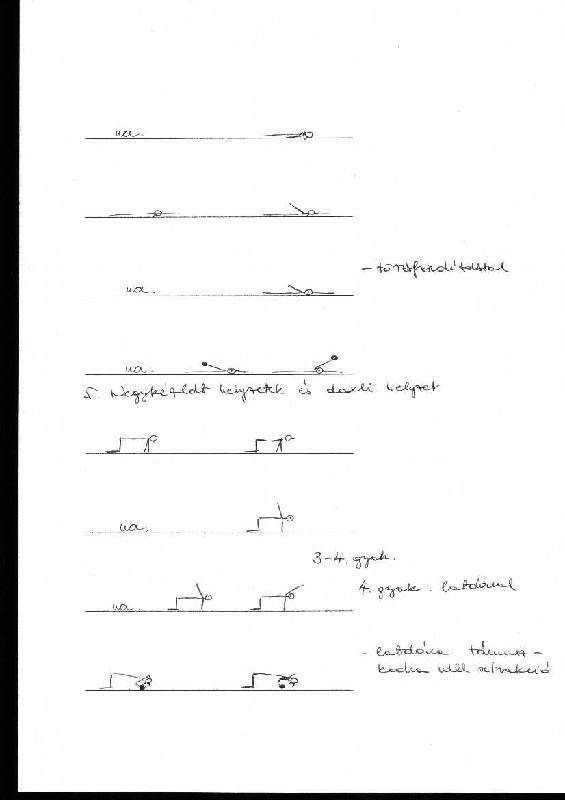 ua.
ua.
- törzsfordítással
ua.
5. Négykézláb helyzetek és daxli helyzet
ua.
3-4. gyak.
ua.
4. gyak. labdával
- labdára támasz-